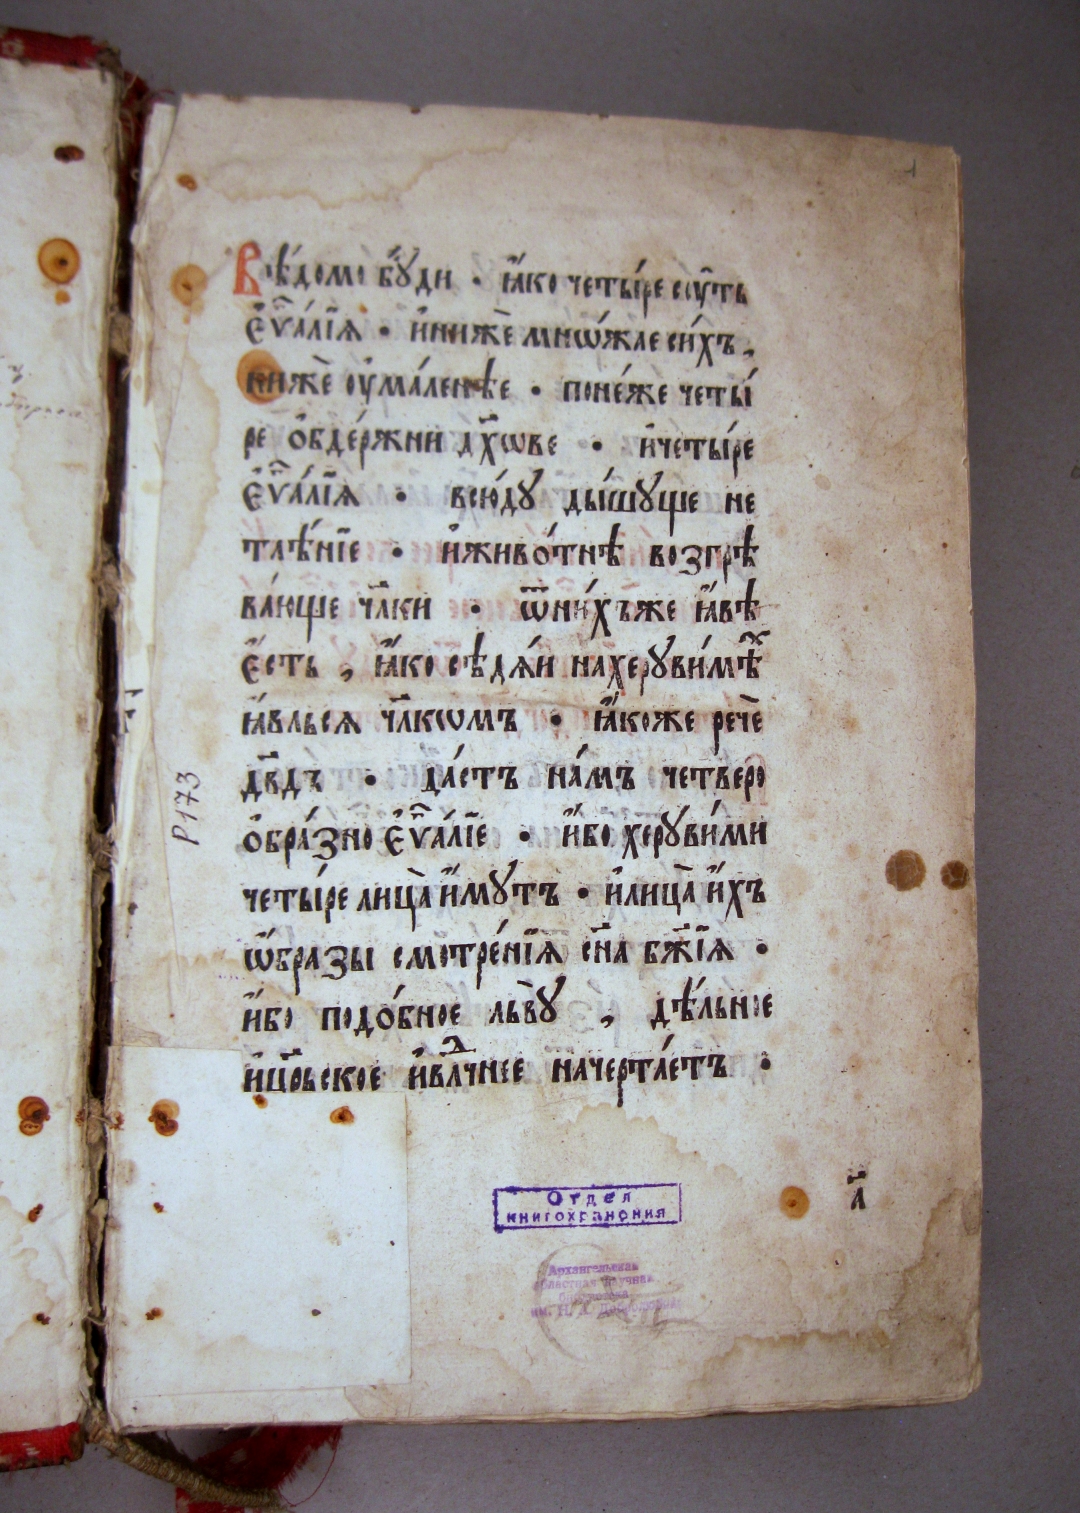 1
Вѣ́домо бꙋ́ди · ꙗ҆́ко четы́ре сꙋ́ть
є҆ѵⷢ҇а́лїѧ · и҆нижѐ мнѡ́жае си́хъ,
нижѐ ᲂу҆ма́ленѣе · поне́же четы́
ре ѻ҆бде́ржни дх҃ѡве · и҆четы́ре
є҆ѵⷢ҇а́лїѧ · всю́дꙋ ды́шꙋще не
тлѣ́нїе · и҆живо́тнѣ возгрѣ
ва́юще чл҃ки · ѿни́хъже ꙗ҆́вѣ
є҆́сть, ꙗ҆́ко сѣдѧ́и нахерꙋви́мѣⷯ
ꙗ҆́вльсѧ чл҃кѡмъ · ꙗ҆́коже речѐ
дв҃дъ · да́стъ на́мъ четверо
ѻ҆бра́зно є҆ѵⷢ҇а́лїе · и҆́бо херꙋви́ми
четы́ре лица̀ и҆́мꙋтъ · и҆лица̀ и҆́хъ
ѡ҆́бразы смотре́нїѧ сн҃а бж҃їѧ ·
и҆́бо подо́бное льв꙽ꙋ̀, дѣ́льное
и҆цр҃ьское и҆влⷣчнее начерта́етъ ·
Р173
Отдел
книгохранения
а҃
Архангельская
областная научная
библиотека
им. Н. А. Добролюбова